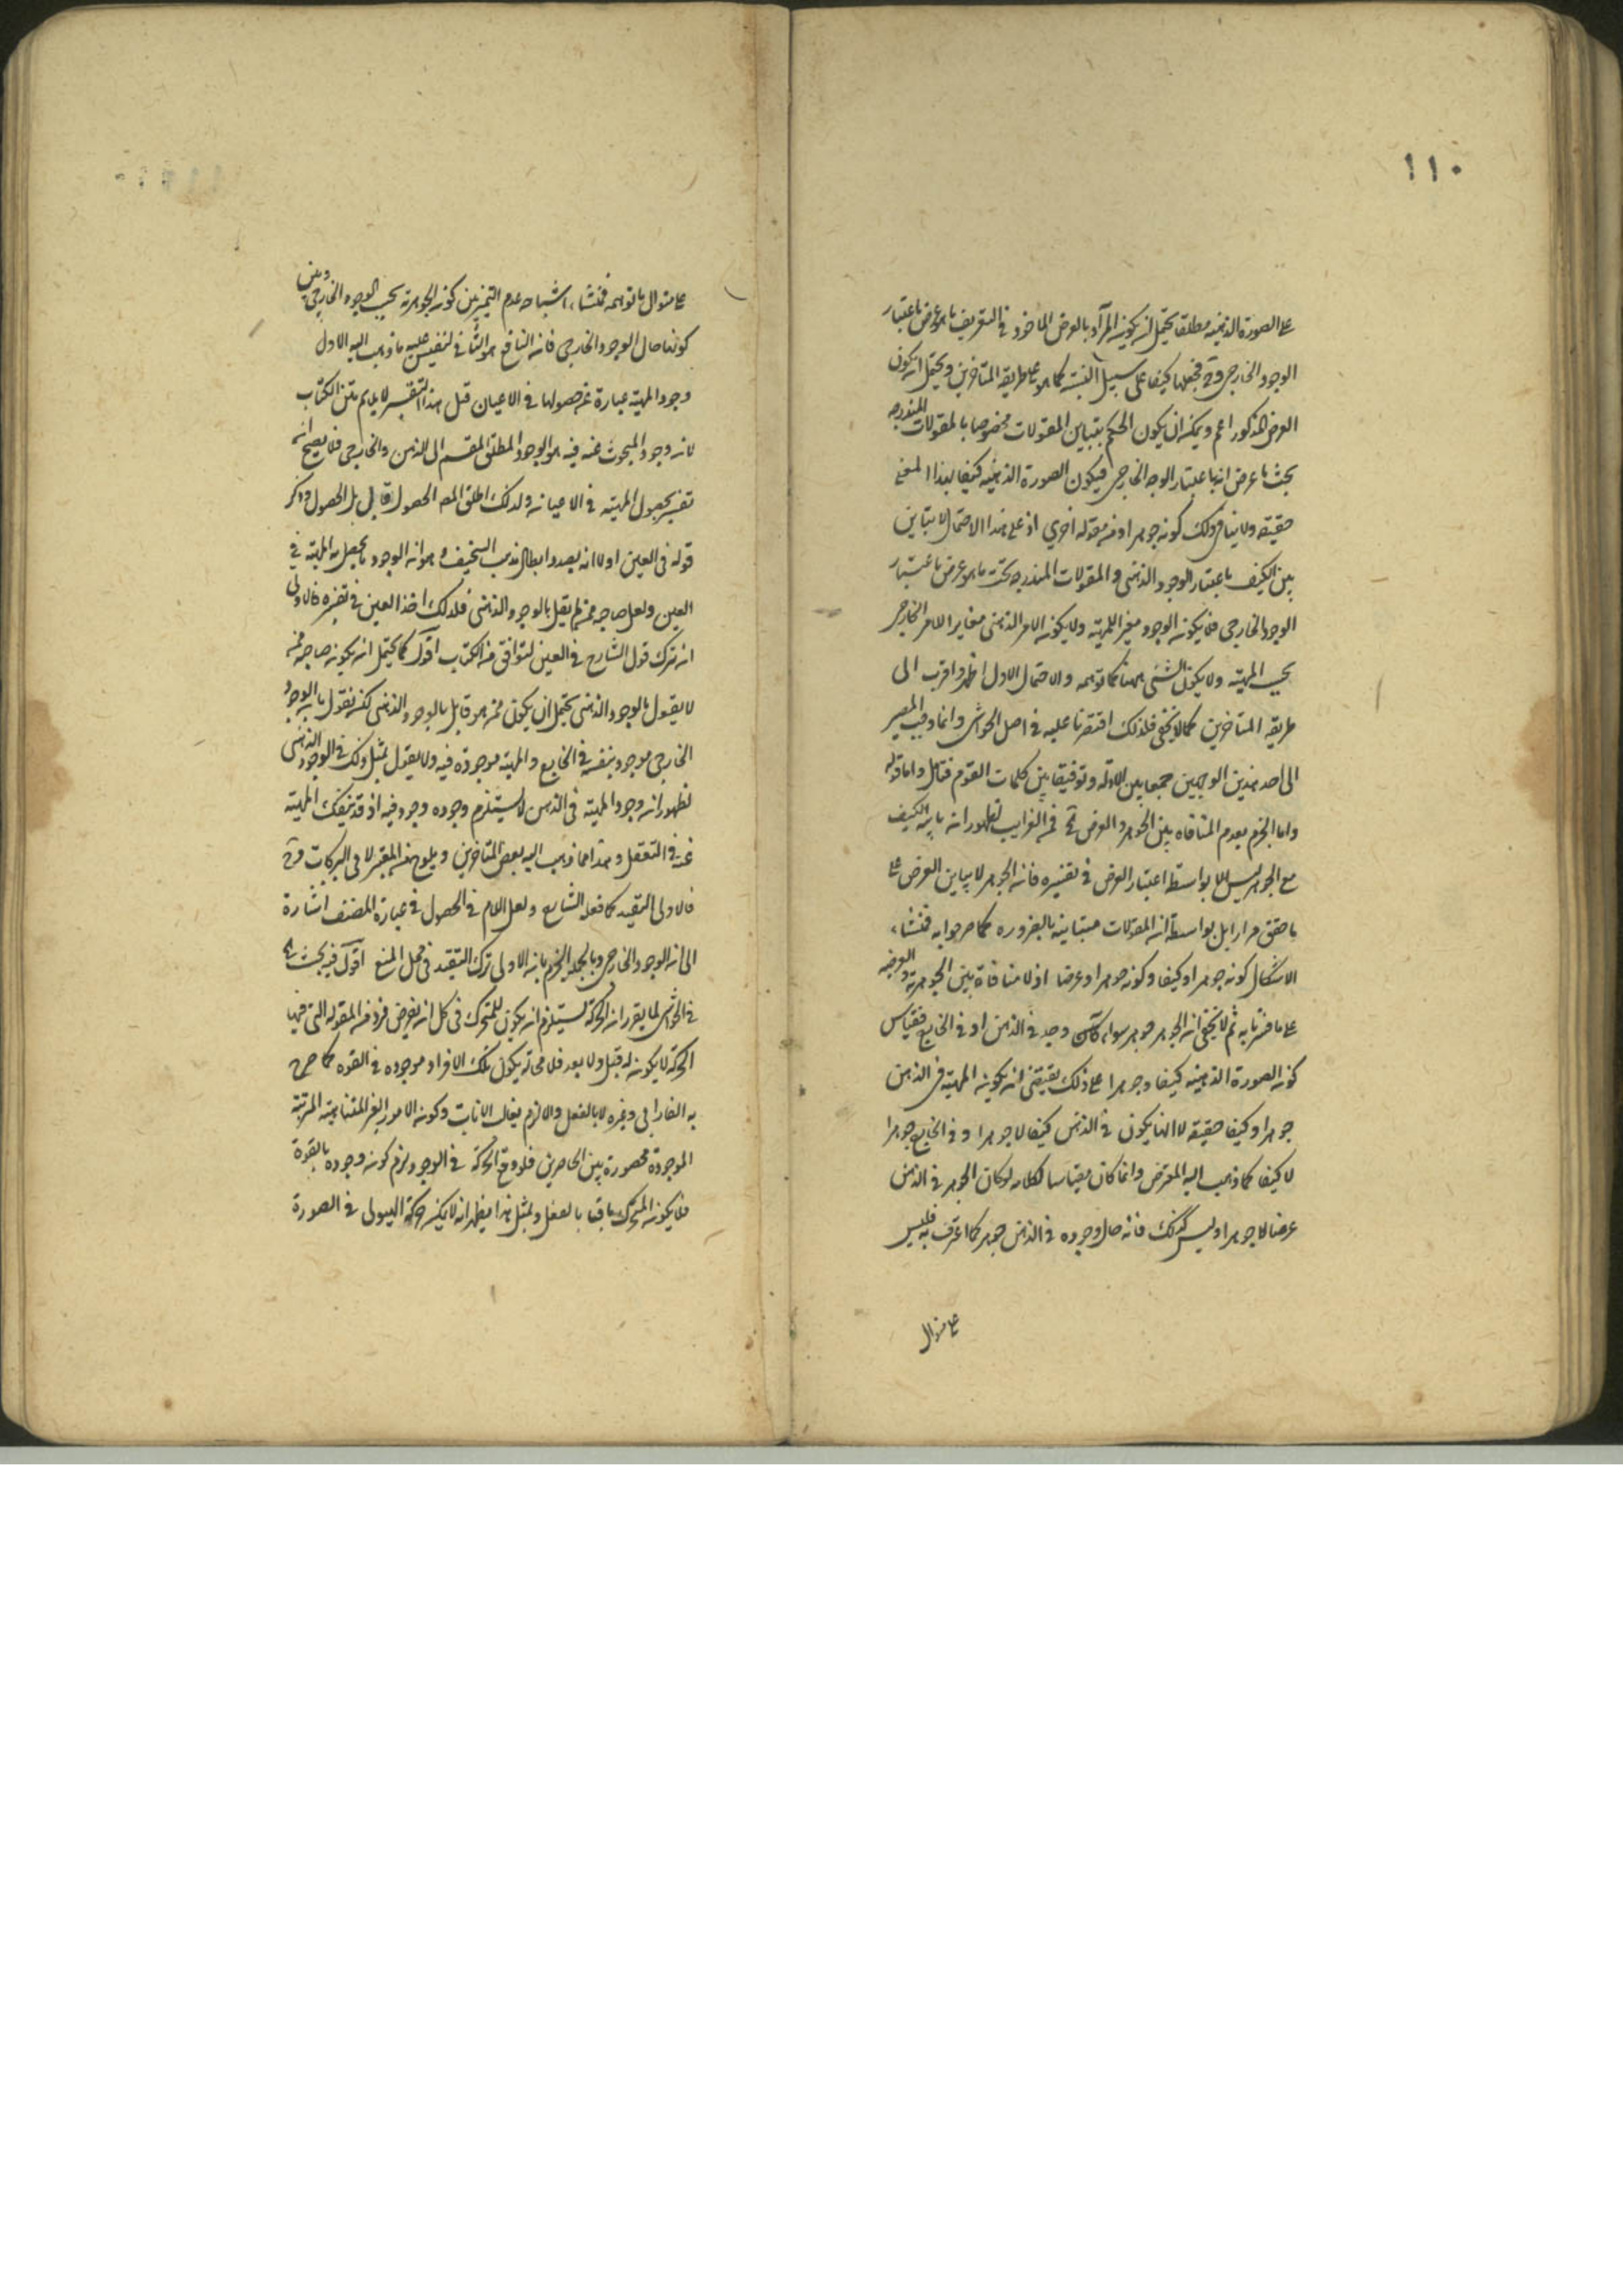 ١١٠
على الصورة الذهنيه مطلقا يحتمل ان يكون المراد بالعرض الماخوذ فى التعريف ما هو عرض باعتبار
الوجود الخارجى وح فجعلها كيفا على سبيل التشبيه كما هو على طريقه المتاخرين ويحتمل ان يكون
العرض المذكور اعم ويمكن ان يكون الحكم بتباين المقولات مخصوصا بالمقولات المندرجه
تحت ما عرض انها باعتبار الوجود الخارجى فيكون الصورة الذهنيه كيفا بهذا المعنى
حقيقه ولا ينافى ذلك كونه جوهرا او من مقوله اخرى اذ على هذا الاحتمال لا تباين
بين الكيف باعتبار الوجود الذهنى والمقولات المندرجه تحت ما هو عرض باعتبار
الوجود الخارجى فلا يكون الوجود مغير للمهيته ولا يكون الامر الذهنى مغايرا للامر الخارجى
بحسب المهيته ولا يكون الشئ مهنا كما توهمه والاحتمال الاول اظهر واقرب الى
طريقه المتاخرين كما لا يخفى فلذلك اقتصرنا عليه فى اصل الحواشى وانما وجب المصير
الى احد هذين الوجهين جمعا بين الادله وتوفيقا بين كلمات القوم فتامل واما قوله
واما الجزم بعدم المنافاه بين الجوهر والعرض فمن الغرايب لظهور ان مباينه الكيف
مع الجوهر ليس الا بواسطه اعتبار العرض فى تفسيره فان الجوهر لا يباين العرض على
ما حقق مرارا بل بواسطه ان المقولات متباينه بالضروره كما مر جوابه فمنشاء
الاشكال كونه جوهرا وكيفا وكونه جوهرا وعرضا اذ لا منافاة بين الجوهريه والعرضيه
على ما فسرنا به ثم لا يخفى ان الجوهر جوهر سواء كان وجد فى الذهن او فى الخارج فقياس
كون الصورة الذهنيه كيفا وجوهرا على ذلك يقتضى ان يكون المهيته فى الذهن
جوهرا وكيفا حقيقه لا انها يكون فى الذهن كيفا لا جوهرا وفى الخارج جوهرا
لا كيفا كما ذهب اليه المعترض وانما كان مقياسا لكلامه لو كان الجوهر فى الذهن
عرضا لا جوهرا وليس كذلك فانه حال وجوده فى الذهن جوهر كما اعترف به فليس
على منوال
على منوال ما توهمه فمنشاء اشتباهه عدم التميز بين كونه الجوهرية بحسب الوجود الخارجى وبين
كونها حال الوجود الخارجى فان النافع هو الثانى لنفيس عليه ما ذهب اليه الاول
وجود المهيته عبارة عن حصولها فى الاعيان قيل هذا التفسير لا يلايم متن الكتاب
لان وجود المبحوث عنه فيه هو الوجود المطلق المقسم الى الذهن والخارجى فلا يصح انه
تفسير بحصول المهيته فى الاعيان ولذلك اطلق المصـ الحصول وقال بل الحصول وذكر
قوله فى العين اولا انه بصدد ابطال مذهب السخيف وهو ان الوجود ما يحصل به المهيته فى
العين ولعل صاحبه ممن لم يقل بالوجود الذهنى فلذلك اخذ العين فى تفسيره فالاولى
ان ترك قول الشارح فى العين لتوافق متن الكتاب اقول كما يحتمل ان يكون صاحبه ممن
لا يقول بالوجود الذهنى يحتمل ان يكون ممن هو قايل بالوجود الذهنى لكنه نقول بان الوجود
الخارجى موجود بنفسه فى الخارج والمهيته موجوده فيه ولا يقول بمثل ذلك فى الوجود الذهنى
لظهور ان وجود المهيته فى الذهن لا يستلزم وجوده وجود فيه اذ قد ينفك المهيته
عنه فى التعقل وهذا مما ذهب اليه بعض المتاخرين ويلوح من المعتبر لابى البركات وح
فالاولى التقييد كما فعله الشارح ولعل اللام فى الحصول فى عبارة المصنف اشارة
الى انه الوجود الخارجى وبالجمله الجزم بان الاولى ترك التقييد فى محل المنع اقول فيه بحث
فى الحواشى لما يقرر ان الحركة يستلزم ان يكون للمتحرك فى كل ان يفرض فرد من المقوله التى فيها
الحركة لا يكون له قبل ولا بعد فلا محاله يكون تلك الافراد موجوده فى القوه كما صرح
به الفارابى وغيره لا بالفعل والا لزم تتالى الانات وكون الامور الغير المتناهيته المترتبه
الموجودة محصورة بين الحاصرين فلو وقع الحركة فى الوجود لزم كونه وجوده بالقوة
فلا يكون المتحرك باقيا بالفعل وبمثل هذا يظهر انه لا يمكن حركة الهيولى فى الصورة